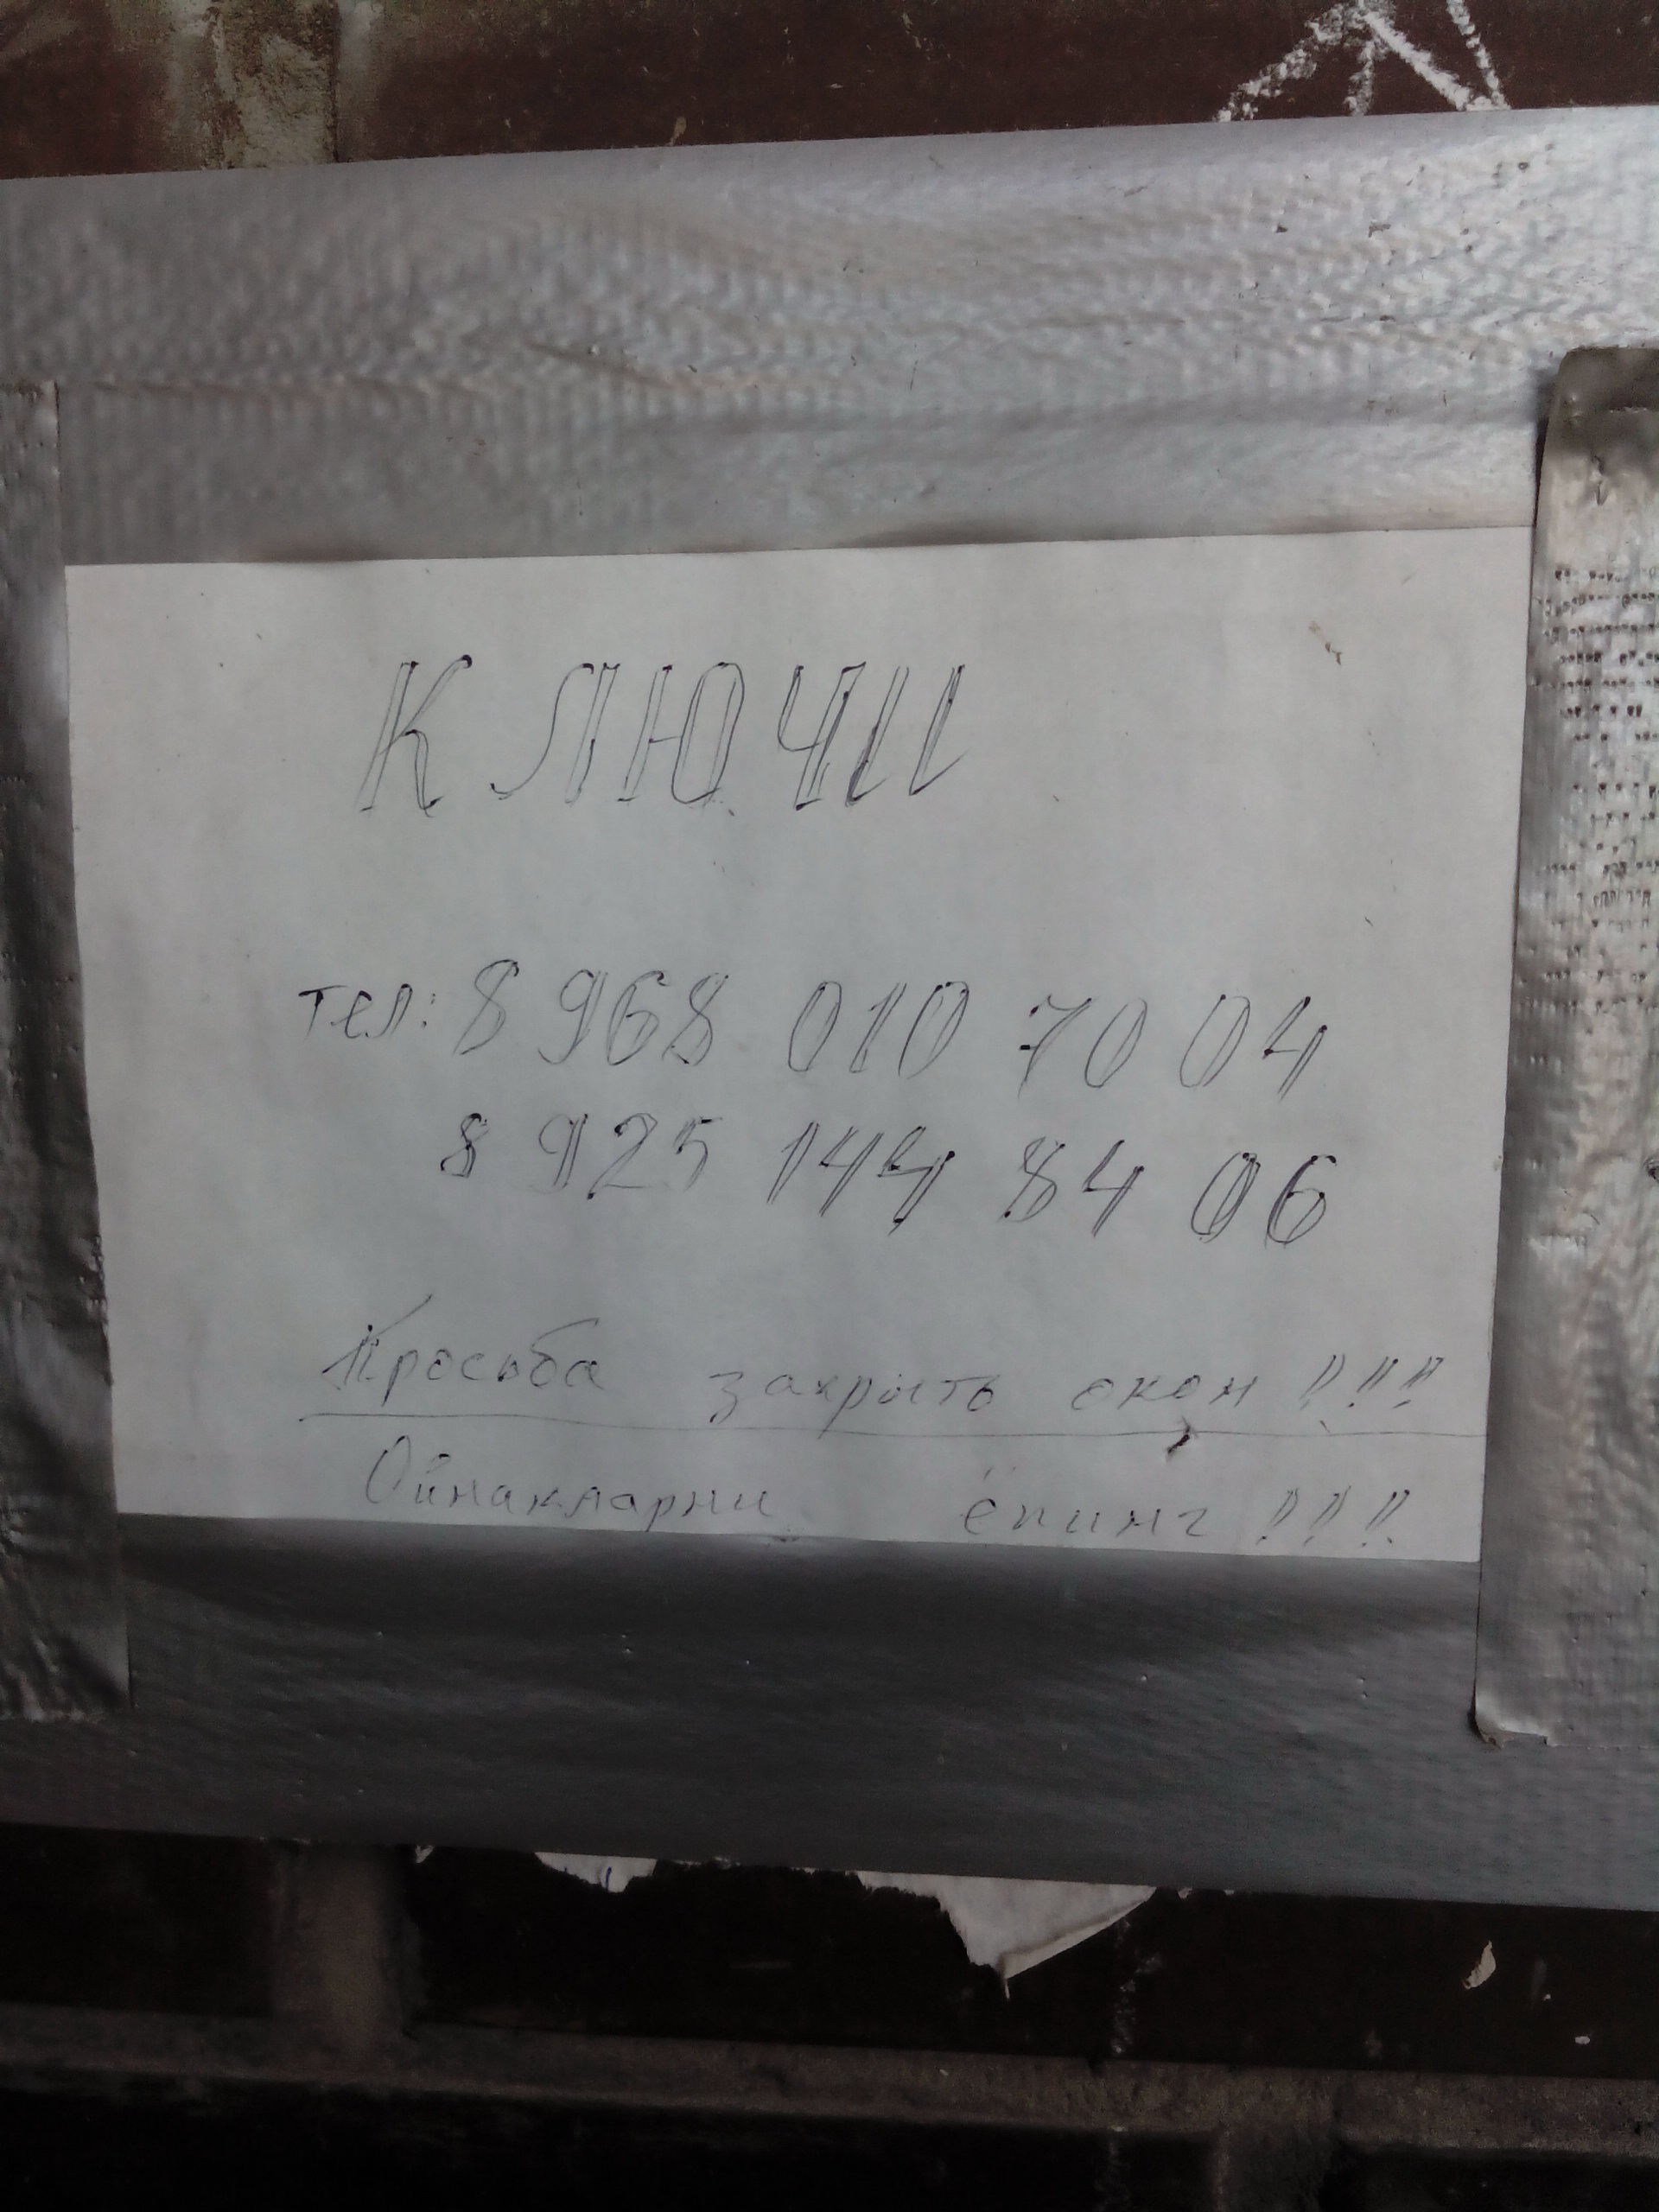 КЛЮЧИ
тел: 8 968 010 70 04
8 925 144 84 06
Просьба закрыть окон!!!
Ойнакларни ёпинг!!!